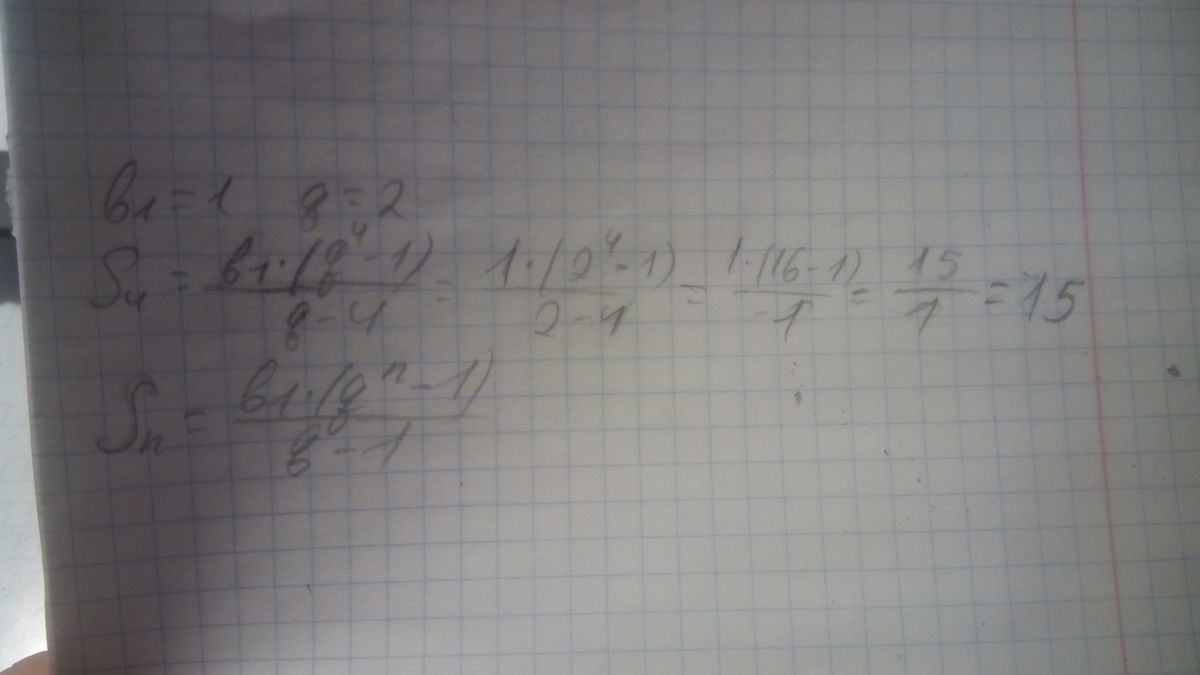 b1 = 1 q = 2
S4 = b1·(q⁴-1)/q-1 = 1·(2⁴-1)/2-1 = 1·(16-1)/1 = 15/1 = 15
Sn = b1·(qⁿ-1)/q-1